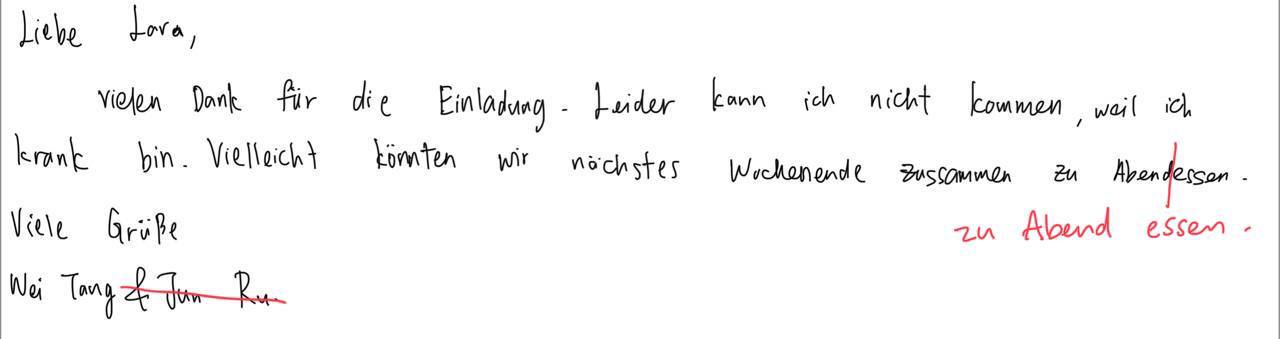 Liebe Lara,
vielen Dank für die Einladung. Leider kann ich nicht kommen, weil ich
krank bin. Vielleicht könnten wir nächstes Wochenende zussammen zu Abendessen.
zu Abend essen.
Viele Grüße
Wei Tang & Jun Ru